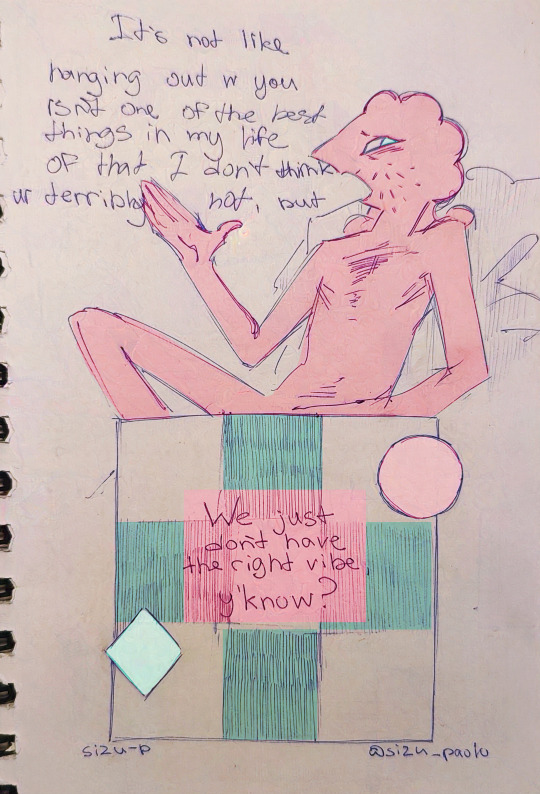 It's not like
hanging out w you
isn't one of the best
things in my life
of that I don't think
ur terribly hot, but
We just
don't have
the right vibe,
y'know?
sizu-p
@sizu_paolu